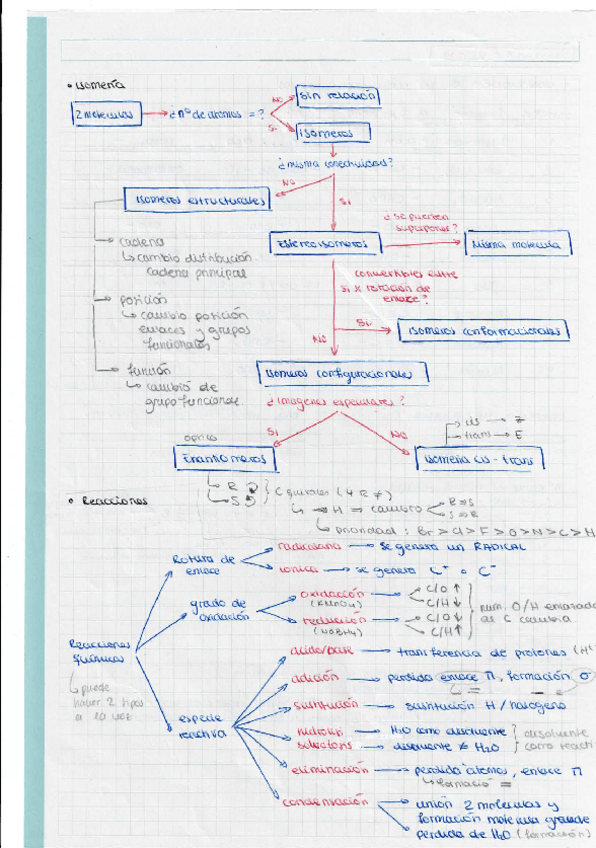 • Isomería
2 moléculas → ¿nº de átomos = ?
NO
Sin relación
Si
isómeros
¿misma conectividad?
NO
Si
Isómeros estructurales
¿se pueden superponer?
Estereoisómeros
Misma molécula
→ cadena
↳ cambio distribución
cadena principal
convertibles entre
si x rotación de
enlace?
→ posición
↳ cambio posición
enlaces y grupos
funcionales
Si
Isómeros conformacionales
NO
→ función
↳ cambio de
grupo funcional
Isómeros configuracionales
¿imágenes especulares?
Si
NO
cis → Z
trans → E
óptico
Enantiómeros
Isomería cis - trans
R
S
C quirales (4 R ≠)
↳ → H → cambio
R → S
S → R
↳ prioridad : Br > Cl > F > O > N > C > H
• Reacciones
Reacciones
químicas
↳ puede
haber 2 tipos
a la vez
Rotura de
enlace
radicalaria → se genera un RADICAL
iónica → se genera C⁺ o C⁻
grado de
oxidación
oxidación
(KMnO₄)
C/O ↑
C/H ↓
reducción
(NaBH₄)
C/O ↓
C/H ↑
num. O/H enlazado
al C cambia
especie
reactiva
ácido/base → transferencia de protones (H⁺
adición → perdida enlace π, formación σ
=
–
sustitución → sustitución H / halógeno
→ H₂O como disolvente
→ disolvente ≠ H₂O
disolvente
como reacti
eliminación → perdida átomos, enlace π
↳ formació =
condensación → unión 2 moléculas y
formación molécula grande
→ perdida de H₂O (formación)